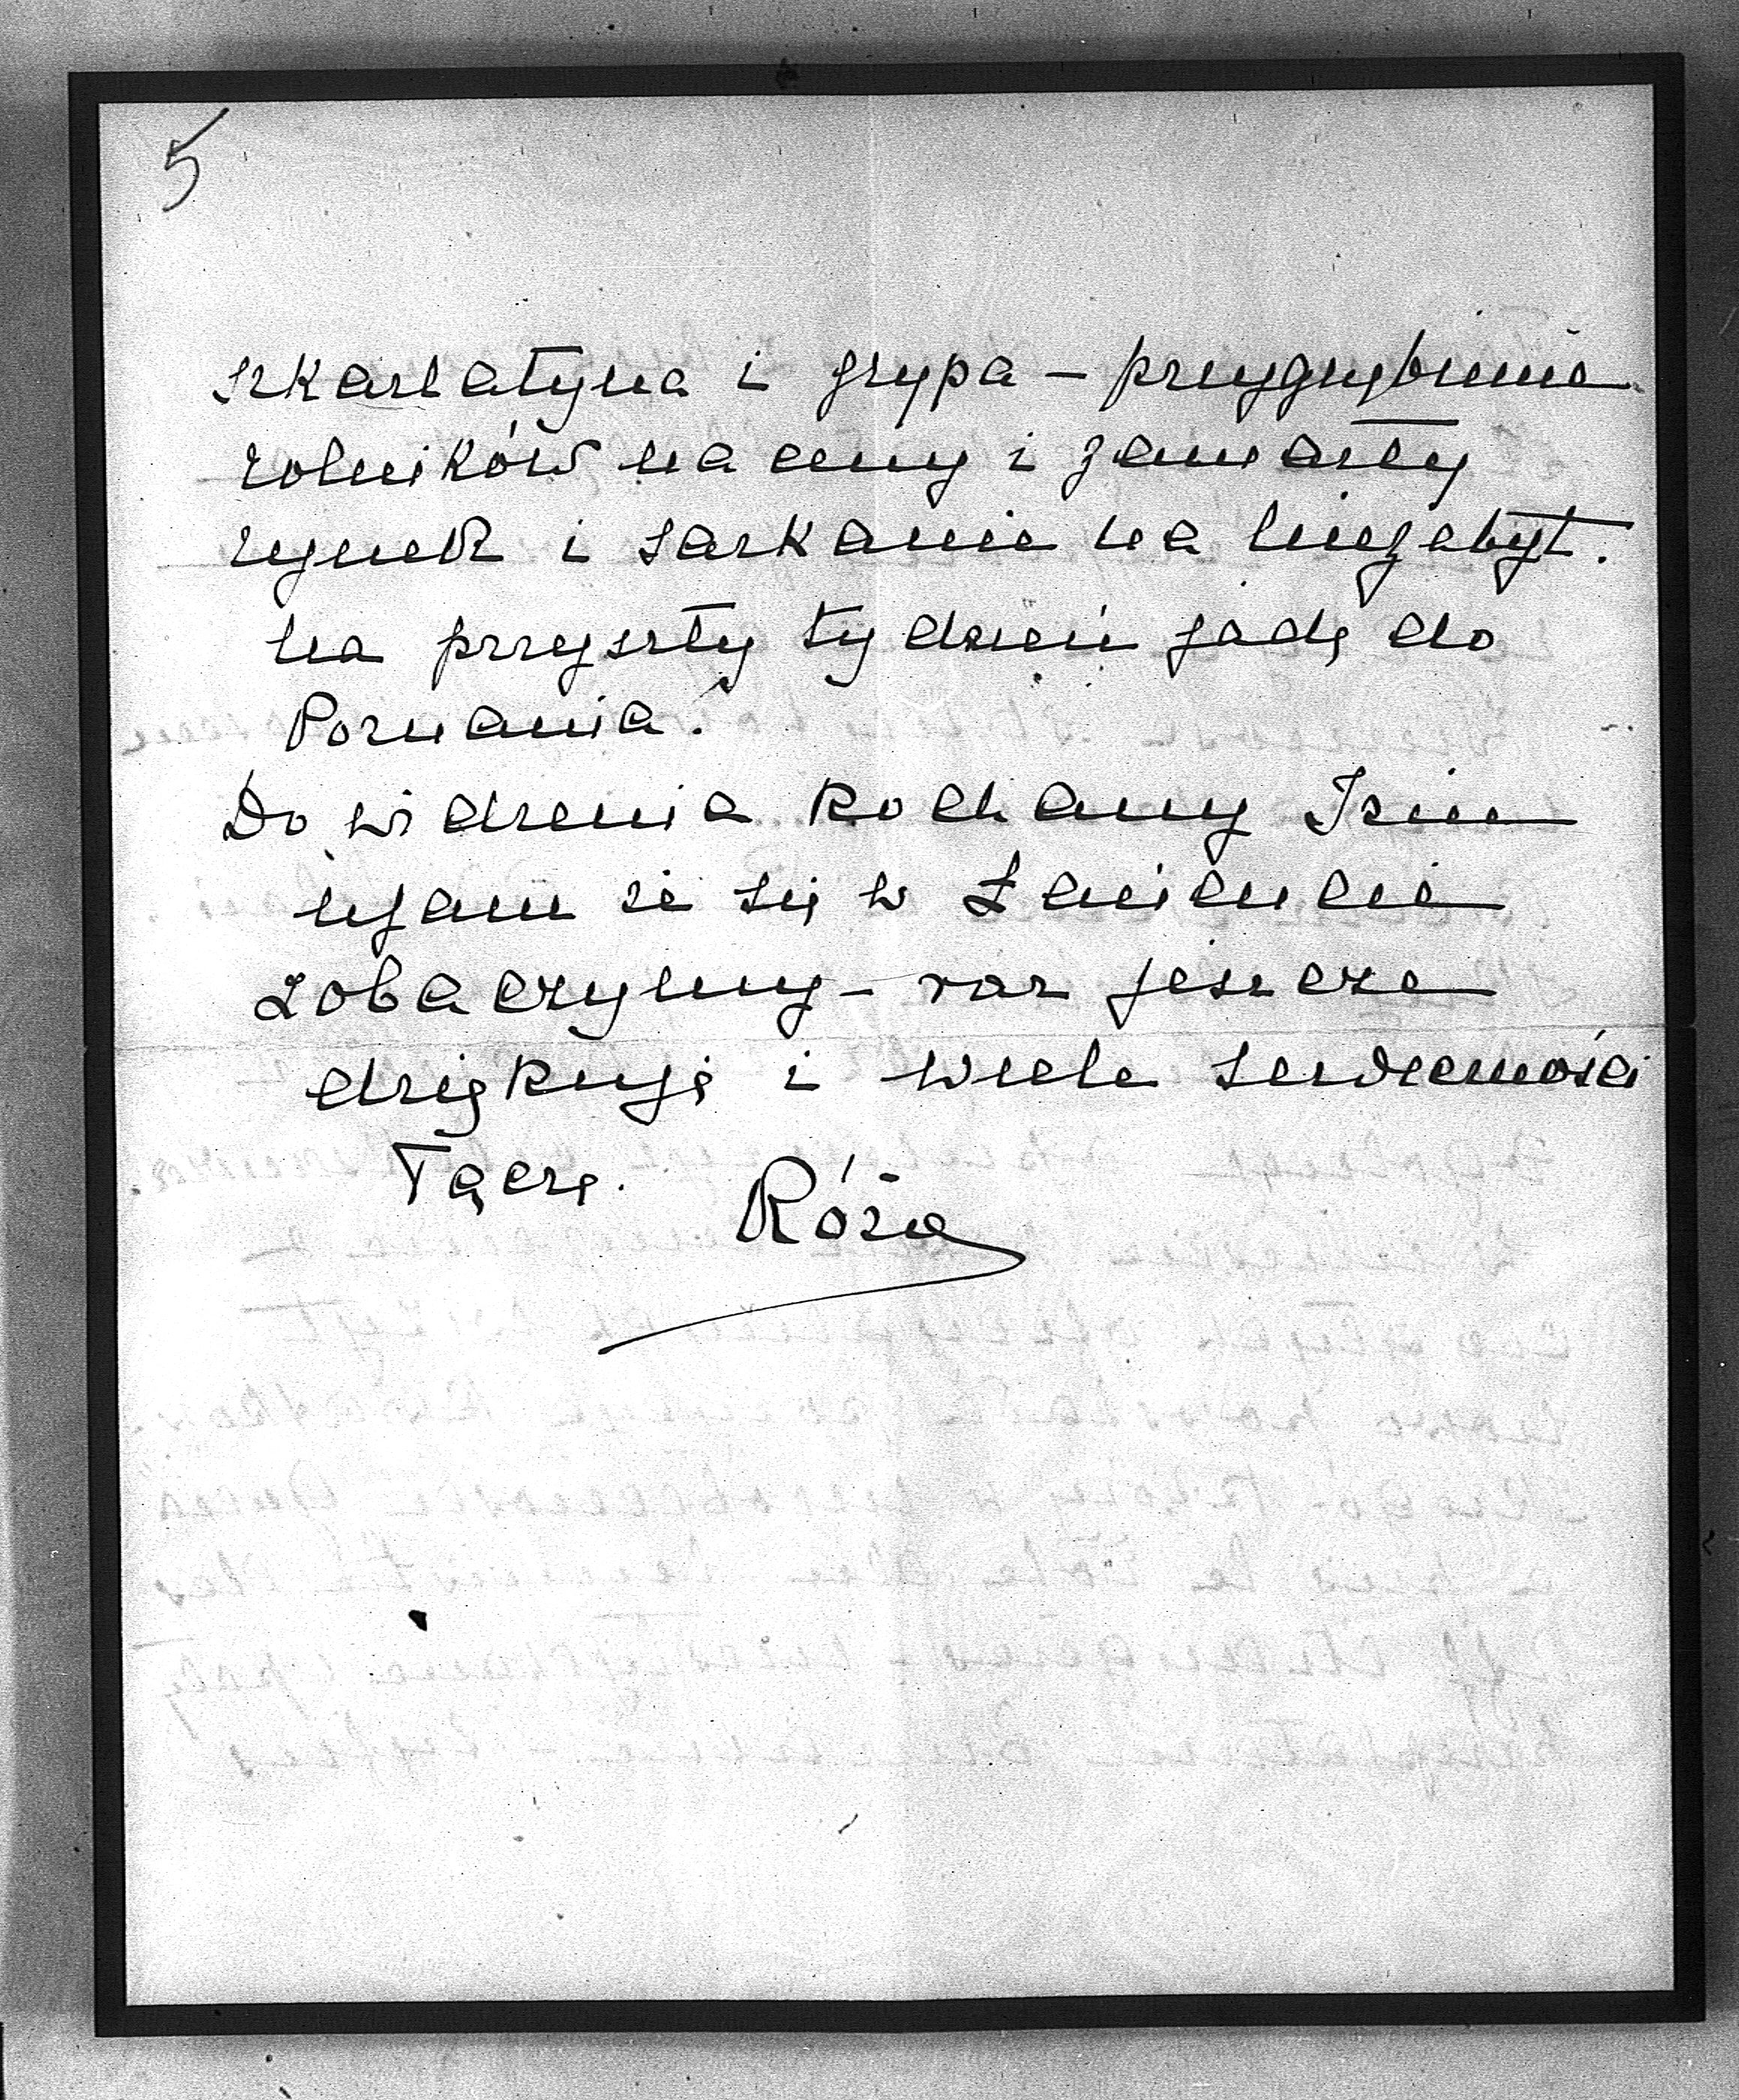 5
szkarlatyna i grypa – przygnębienie
rolników na ceny i zamarły
rynek i sarkanie na
na przyszły tydzień jadę do
Poznania.
Do widzenia kochany
ufam że się w
zobaczymy – raz jeszcze
dziękuję i wiele serdeczności
łączę.
Róża